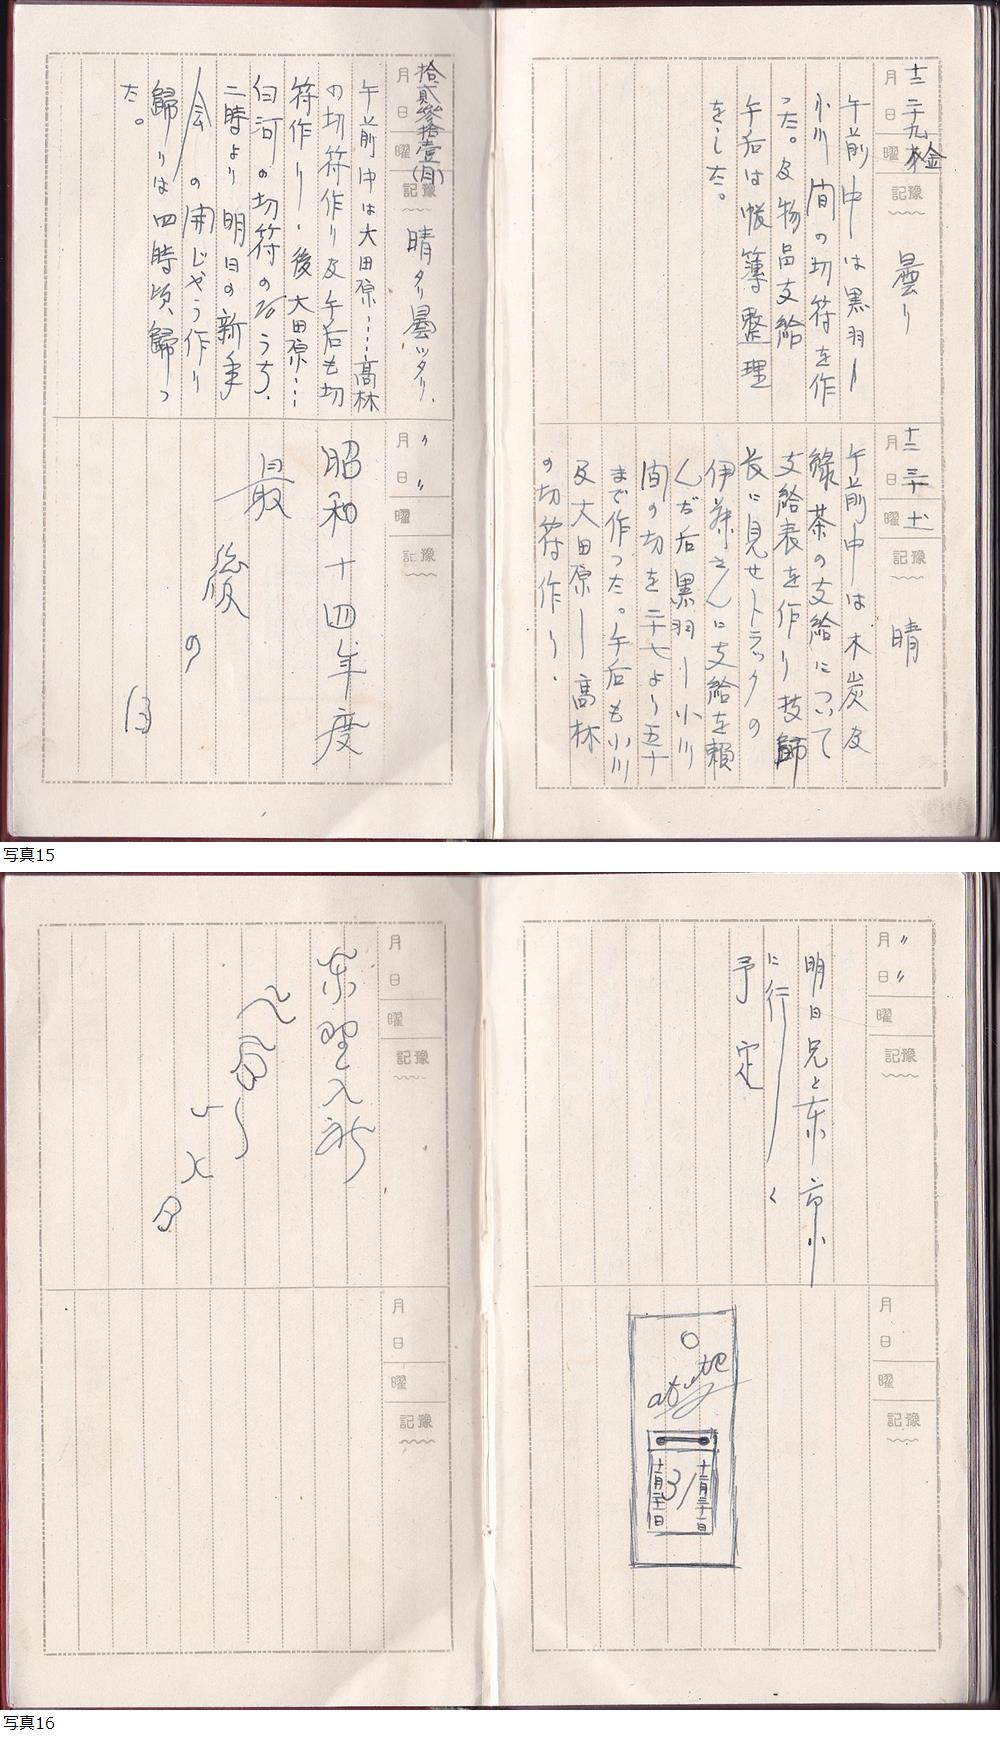 月 日 曜 豫記
十二 二十九 金
曇り
午前中は黒羽ー
小川間の切符を作
った。及物品支給
午后は帳簿整理
をした。
月 日 曜 豫記
十二 三十 土
晴
午前中は木炭及
綠茶の支給について
支給表を作り技師
長に見せトラックの
伊藤さんに支給を頼
んだ后黒羽ー小川
間の切を二十七より五十
まで作った。午后も小川
及大田原ー高林
の切符作り、
月 日 曜 豫記
拾貳 參拾壹(日)
晴タリ曇ッタリ、
午前中は大田原……高林
の切符作り及午后も切
符作り、後大田原……
白河の切符の
二時より明日の新年
会の開じやう作り
歸りは四時頃歸っ
た。
月〃 日〃 曜 豫記
昭和十四年度
最
後
の
日
写真15
月〃 日〃 曜 豫記
明日兄と東京
に行く
予定
月 日 曜 豫記
31
十二月三十一日
十二月三十一日
月 日 曜 豫記
月 日 曜 豫記
写真16